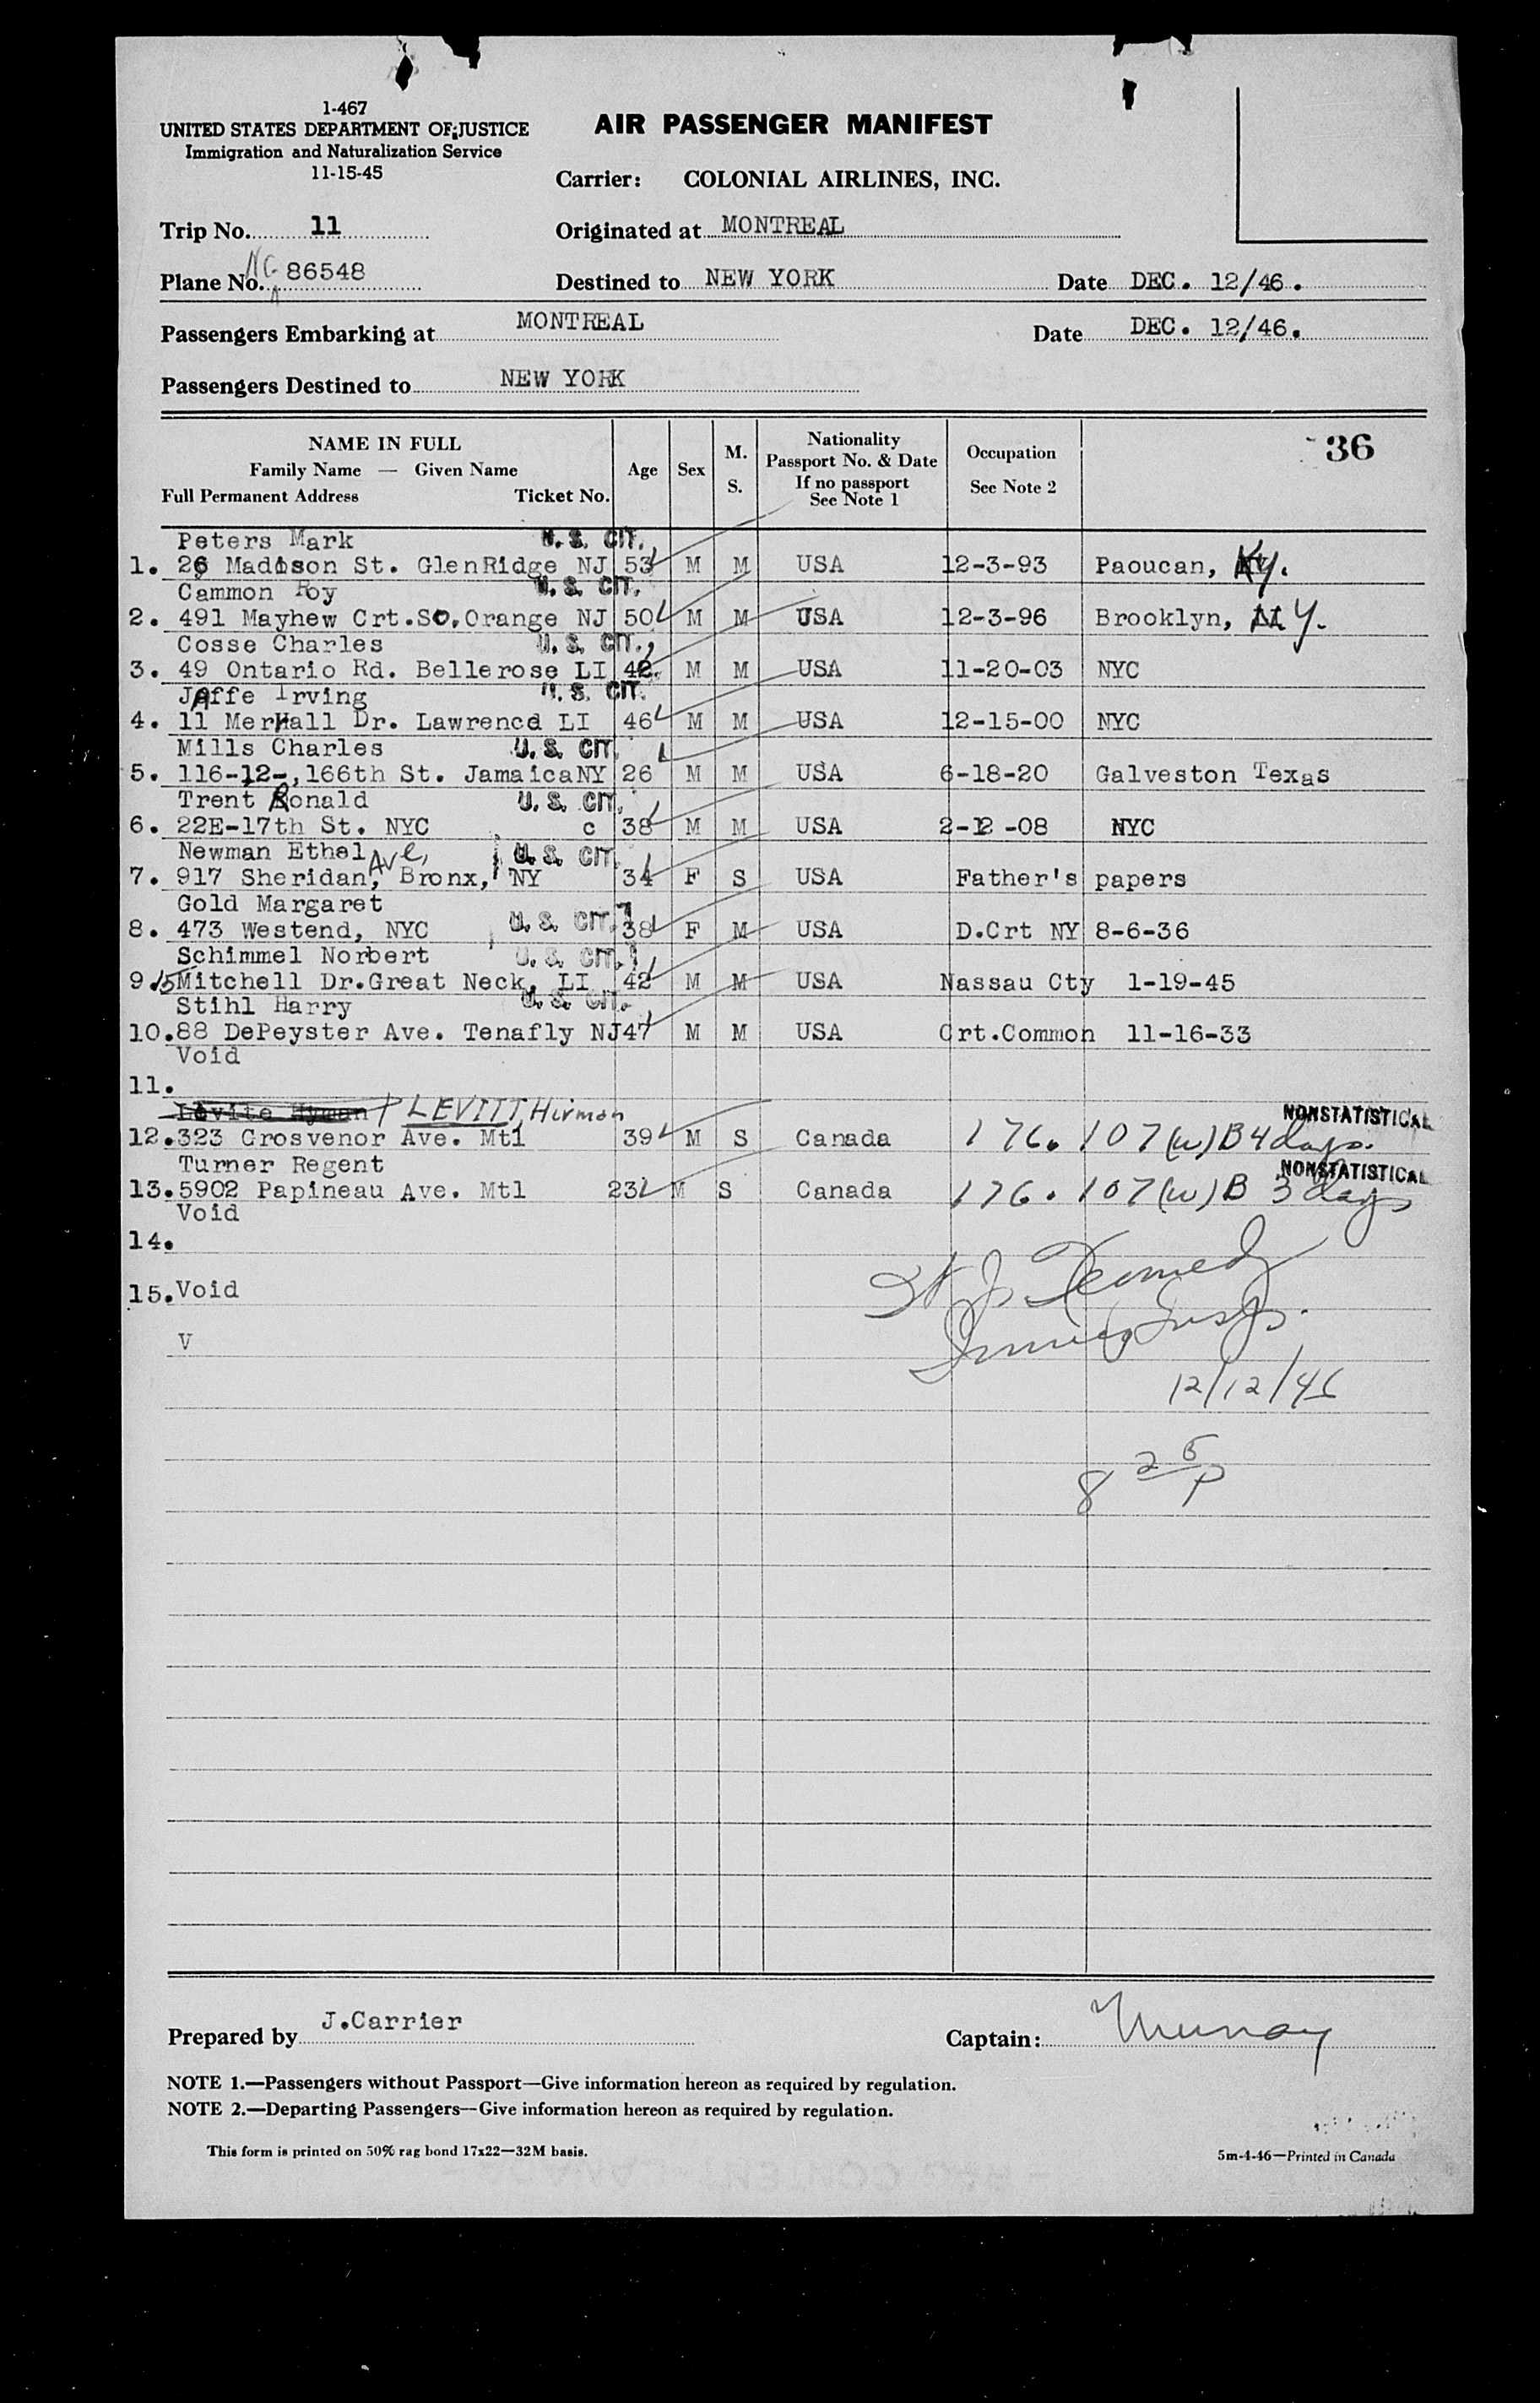 1-467
UNITED STATES DEPARTMENT OF JUSTICE
Immigration and Naturalization Service
11-15-45
AIR PASSENGER MANIFEST
Carrier: COLONIAL AIRLINES, INC.
Trip No. 11
Originated at MONTREAL
Plane No. NC 86548
Destined to NEW YORK
Date DEC. 12/46.
Passengers Embarking at MONTREAL
Date DEC. 12/46.
Passengers Destined to NEW YORK
NAME IN FULL
Family Name — Given Name
Full Permanent Address Ticket No.
Age
Sex
M.
S.
Nationality
Passport No. & Date
If no passport
See Note 1
Occupation
See Note 2
36
Peters Mark U. S. CIT.
1. 26 Madison St. GlenRidge NJ 53 M M USA 12-3-93 Paoucan, Ky.
Cammon Roy U. S. CIT.
2. 491 Mayhew Crt.SO.Orange NJ 50 M M USA 12-3-96 Brooklyn, N.Y.
Cosse Charles U. S. CIT.
3. 49 Ontario Rd. Bellerose LI 42 M M USA 11-20-03 NYC
JAffe Irving U. S. CIT.
4. 11 MerHall Dr. Lawrence LI 46 M M USA 12-15-00 NYC
Mills Charles U. S. CIT.
5. 116-12-,166th St. JamaicaNY 26 M M USA 6-18-20 Galveston Texas
Trent Ronald U. S. CIT.
6. 22E-17th St. NYC c 38 M M USA 2-12-08 NYC
Newman Ethel U. S. CIT.
7. 917 Sheridan, Ave, Bronx, NY 34 F S USA Father's papers
Gold Margaret U. S. CIT.
8. 473 Westend, NYC 38 F M USA D.Crt NY 8-6-36
Schimmel Norbert U. S. CIT.
9. 15 Mitchell Dr.Great Neck, LI 42 M M USA Nassau Cty 1-19-45
Stihl Harry U. S. CIT.
10. 88 DePeyster Ave. Tenafly NJ 47 M M USA Crt.Common 11-16-33
Void
11.
Levite Hyman LEVITT, Hirman NONSTATISTICAL
12. 323 Grosvenor Ave. Mtl 39 M S Canada 176.107(w)B 4 days.
Turner Regent NONSTATISTICAL
13. 5902 Papineau Ave. Mtl 23 M S Canada 176.107(w)B 3 days
Void
14.
15. Void
V
Immig Insp.
12/12/46
8 25 P
Prepared by J.Carrier
Captain: Murray
NOTE 1.—Passengers without Passport—Give information hereon as required by regulation.
NOTE 2.—Departing Passengers—Give information hereon as required by regulation.
This form is printed on 50% rag bond 17x22—32M basis.
5m-4-46—Printed in Canada